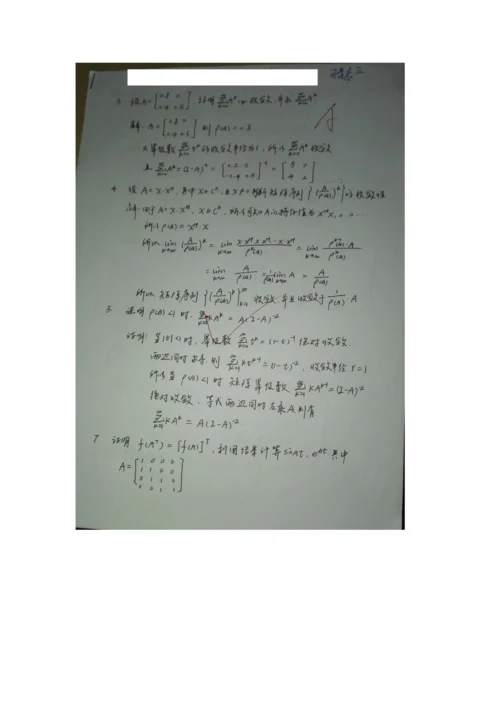 习题三
3. 设A=[0.8 0; -0.4 0.5], 证明 ∑A^k 收敛, 并求 ∑A^k
解: A=[0.8 0; -0.4 0.5] 则 ρ(A)=0.8
又幂级数 ∑t^k 的收敛半径为1, 所以 ∑A^k 收敛
且 ∑A^k=(I-A)^-1
4. 设 A=X·X^H, 其中 X∈C^n, 且 X≠0 判断矩阵序列{(A/ρ(A))^k}的收敛性
解: 由于 A=X·X^H, X∈C^n, 所以可知A的特征值为 X^HX, 0, 0 ····
所以 ρ(A)=X^H·X
所以 lim(k→∞) (A/ρ(A))^k = lim(k→∞) X·X^H X·X^H···X·X^H/ρ^k(A) = lim(k→∞) ρ^(k-1)(A)·A/ρ^k(A)
= lim(k→∞) A/ρ(A) = 1/ρ(A) lim(k→∞) A = A/ρ(A)
所以 矩阵序列{(A/ρ(A))^k} 收敛, 并且收敛于 1/ρ(A) A
5. 证明 ρ(A)<1 时, ∑kA^k = A(I-A)^-2
证明: 当|t|<1时, 幂级数 ∑t^k = (1-t)^-1 绝对收敛.
两边同时求导, 则 ∑kt^(k-1) = (1-t)^-2, 收敛半径 r=1
所以当 ρ(A)<1 时 矩阵幂级数 ∑kA^(k-1) = (I-A)^-2
绝对收敛, 等式两边同时左乘A则有
∑kA^k = A(I-A)^-2
7 证明 f(A^T) = [f(A)]^T, 利用结果计算 sinAt, e^At 其中
A=[1 0 0 0; 1 1 0 0; 0 1 1 0; 0 0 1 1]